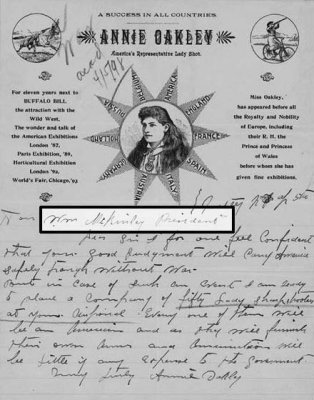 A SUCCESS IN ALL COUNTRIES.
ANNIE OAKLEY
America's Representative Lady Shot.
For eleven years next to
BUFFALO BILL
the attraction with the
Wild West.
The wonder and talk of
the American Exhibitions
London '87.
Paris Exhibition, '89,
Horticultural Exhibition
London '92.
World's Fair, Chicago, '93
AMERICA
ENGLAND
FRANCE
SPAIN
ITALY
HOLLAND
Miss Oakley,
has appeared before all
the Royalty and Nobility
of Europe, including
their R. H. the
Prince and Princess
of Wales
before whom she has
given fine exhibitions.
ack'd
4/5/98
Wm McKinley President
Dear Sir I for one feel Confident
that your good judgment will carry America
safely through without War
But in case of such an event I am ready
to place a Company of fifty lady sharpshooters
at your disposal. Every one of them will
be an American and as they will furnish
their own Arms and Ammunition will
be little if any expense to the government
Very truly Annie Oakley